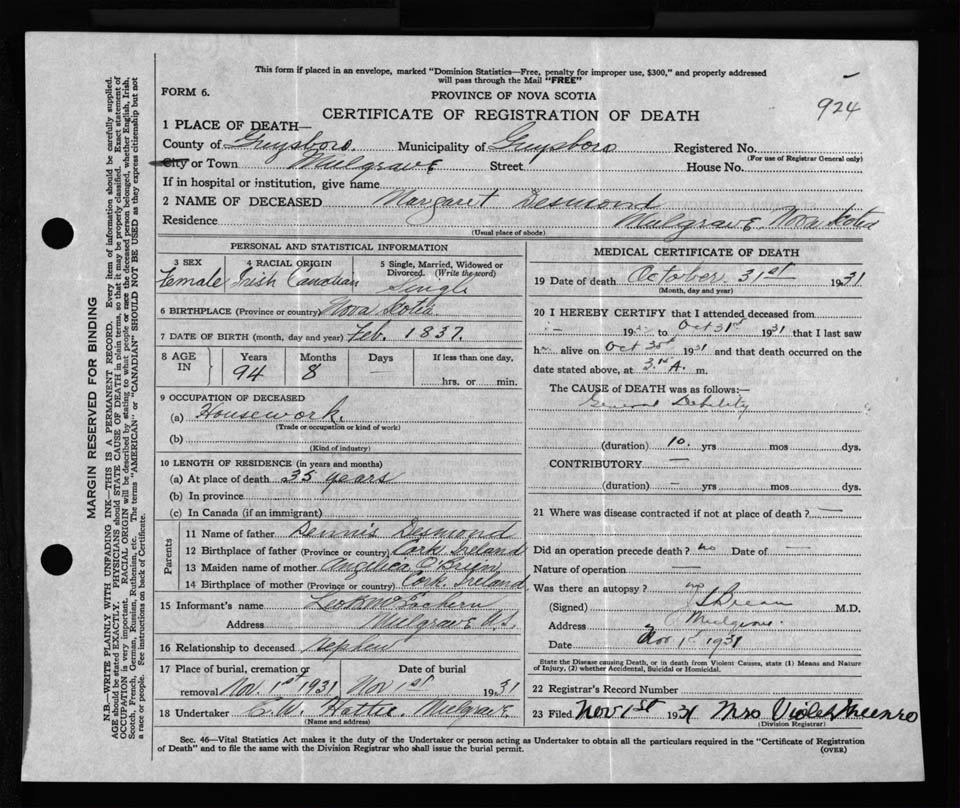 This form if placed in an envelope, marked "Dominion Statistics—Free, penalty for improper use, $300," and properly addressed
will pass through the Mail "FREE"
FORM 6.
PROVINCE OF NOVA SCOTIA
924
CERTIFICATE OF REGISTRATION OF DEATH
1 PLACE OF DEATH—
County of Guysboro. Municipality of Guysboro Registered No.
(For use of Registrar General only)
City or Town Mulgrave Street House No.
If in hospital or institution, give name
2 NAME OF DECEASED Margaret Desmond
Residence Mulgrave, Nova Scotia
(Usual place of abode)
PERSONAL AND STATISTICAL INFORMATION
3 SEX 4 RACIAL ORIGIN 5 Single, Married, Widowed or Divorced. (Write the word)
Female Irish Canadian Single
6 BIRTHPLACE (Province or country) Nova Scotia
7 DATE OF BIRTH (month, day and year) Feb. 1837.
8 AGE IN Years Months Days If less than one day,
94 8 — hrs. or min.
9 OCCUPATION OF DECEASED
(a) Housework.
(Trade or occupation or kind of work)
(b)
(Kind of industry)
10 LENGTH OF RESIDENCE (in years and months)
(a) At place of death 35 years
(b) In province
(c) In Canada (if an immigrant)
Parents
11 Name of father Dennis Desmond
12 Birthplace of father (Province or country) Cork Ireland
13 Maiden name of mother Angelica O'Brien
14 Birthplace of mother (Province or country) Cork, Ireland
15 Informant's name
Address Mulgrave N.S.
16 Relationship to deceased Nephew
17 Place of burial, cremation or removal Nov. 1st 1931 Date of burial Nov 1st 1931
18 Undertaker C.W. Hattie. Mulgrave.
(Name and address)
MEDICAL CERTIFICATE OF DEATH
19 Date of death October 31st 1931
(Month, day and year)
20 I HEREBY CERTIFY that I attended deceased from
— 19 to Oct 31st 1931 that I last saw
h alive on Oct 30th 1931 and that death occurred on the
date stated above, at 3. A. m.
The CAUSE of DEATH was as follows:—
General Debility
(duration) 10. yrs mos dys.
CONTRIBUTORY —
(duration) — yrs mos dys.
21 Where was disease contracted if not at place of death? —
Did an operation precede death? no Date of —
Nature of operation —
Was there an autopsy? no
(Signed) M.D.
Address Mulgrave.
Date Nov 1st 1931
State the Disease causing Death, or in death from Violent Causes, state (1) Means and Nature
of Injury, (2) whether Accidental, Suicidal or Homicidal.
22 Registrar's Record Number
23 Filed Nov 1st 1931 Mrs Violet
(Division Registrar)
Sec. 46—Vital Statistics Act makes it the duty of the Undertaker or person acting as Undertaker to obtain all the particulars required in the "Certificate of Registration
of Death" and to file the same with the Division Registrar who shall issue the burial permit.
(OVER)
MARGIN RESERVED FOR BINDING
N.B.—WRITE PLAINLY WITH UNFADING INK—THIS IS A PERMANENT RECORD. Every item of information should be carefully supplied.
AGE should be stated EXACTLY. PHYSICIANS should STATE CAUSE OF DEATH in plain terms, so that it may be properly classified. Exact statement of
OCCUPATION is very important. RACIAL ORIGIN will be described by stating to what people or race the deceased person belonged, whether English, Irish,
Scotch, French, German, Russian, Ruthenian, etc. The terms "AMERICAN" or "CANADIAN" SHOULD NOT BE USED as they express citizenship but not
a race or people. See instructions on back of Certificate.